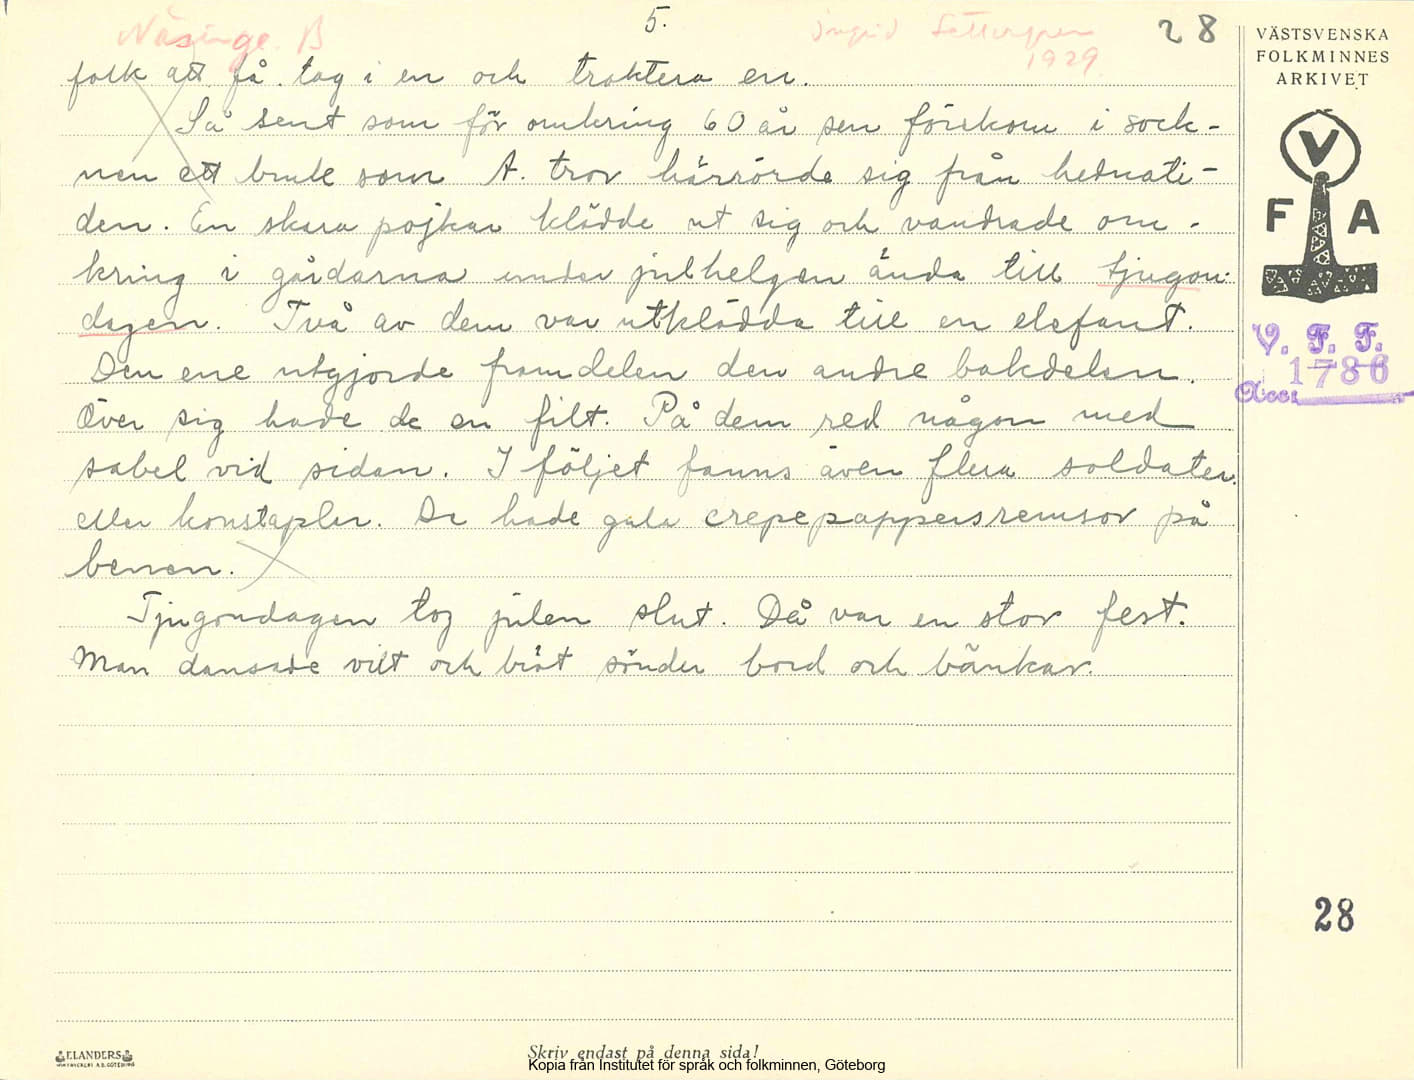 5.
Näsinge B
Ingrid Settergren
1929
28
folk att få tag i en och traktera en.
Så sent som för omkring 60 år sen förekom i sock-
nen ett bruk som A. tror härrörde sig från hednati-
den. En skara pojkar klädde ut sig och vandrade om-
kring i gårdarna under julhelgen ända till tjugon-
dagen. Två av dem var utklädda till en elefant.
Den ene utgjorde framdelen den andre bakdelen.
Över sig hade de en filt. På dem red någon med
sabel vid sidan. I följet fanns även flera soldater
eller konstaplar. De hade gula crepepappersremsor på
benen.
Tjugondagen tog julen slut. Då var en stor fest.
Man dansade vilt och bröt sönder bord och bänkar.
VÄSTSVENSKA
FOLKMINNES
ARKIVET
V
F A
V. F. F.
1786
Acc:
28
ELANDERS
Skriv endast på denna sida!
Kopia från Institutet för språk och folkminnen, Göteborg